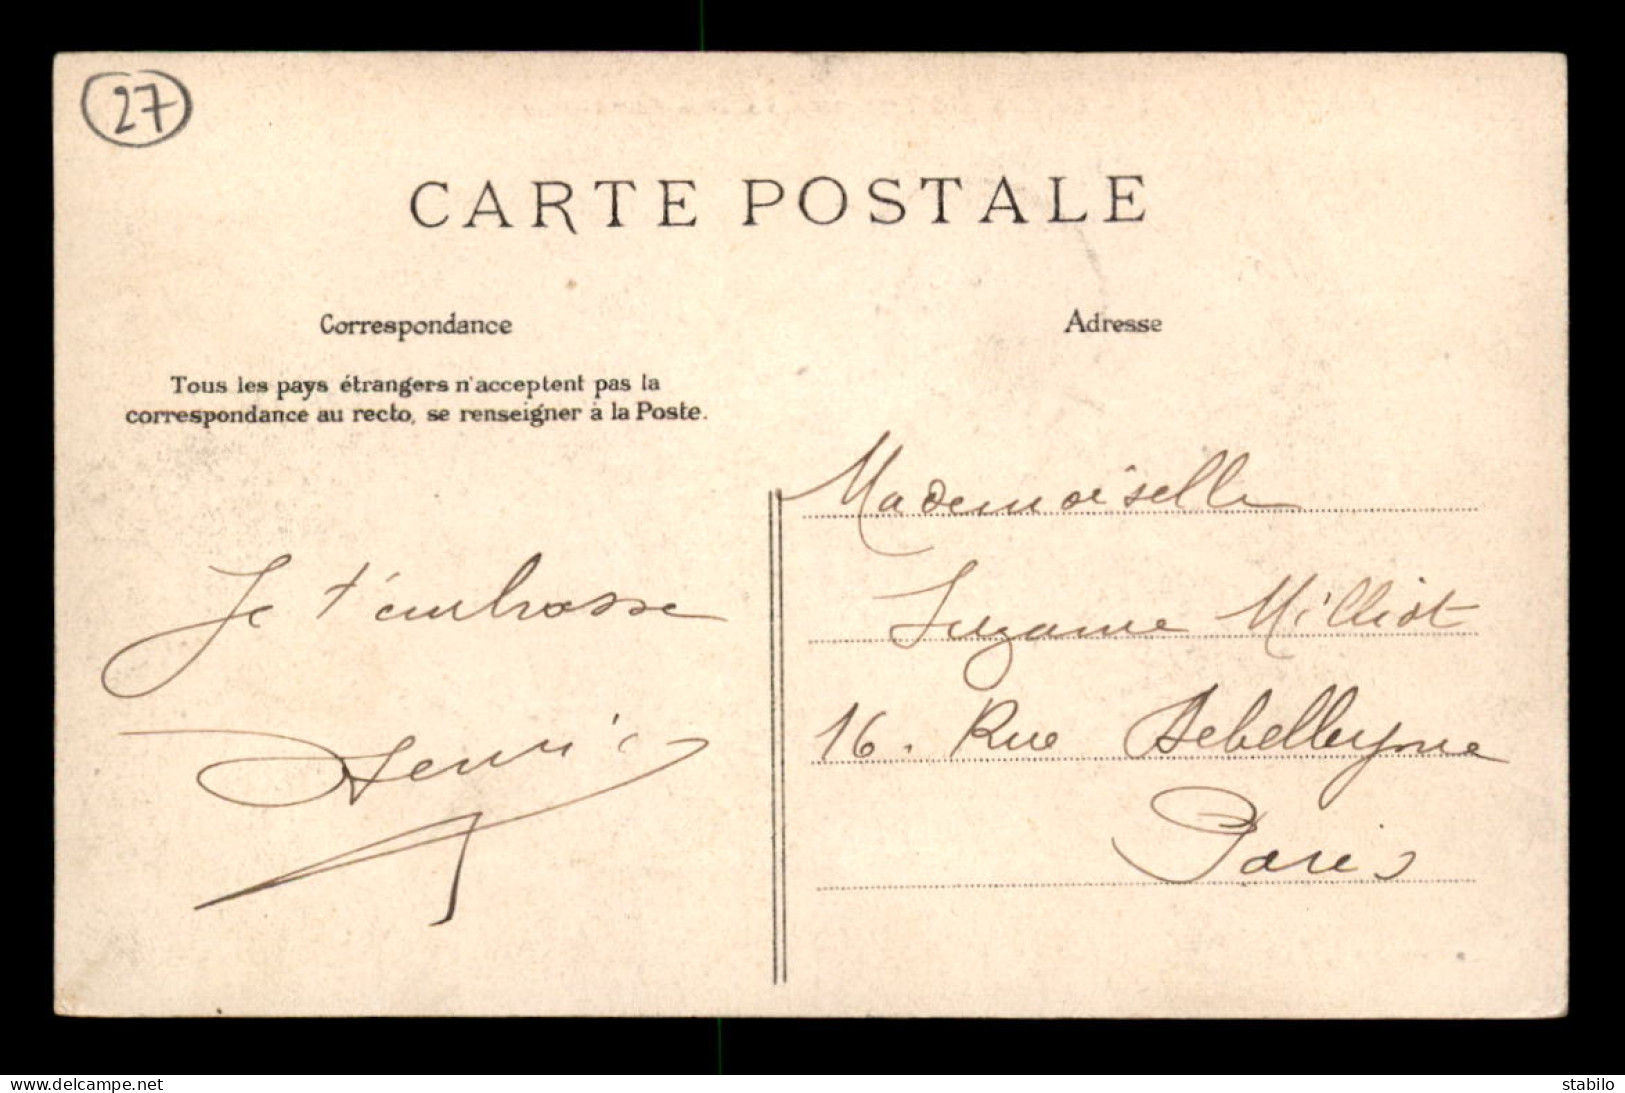 27
CARTE POSTALE
Correspondance
Tous les pays étrangers n'acceptent pas la
correspondance au recto, se renseigner à la Poste.
Je t'embrasse
Adresse
Mademoiselle
Suzanne Milliot
16. Rue Debelleyme
Paris
www.delcampe.net
stabilo